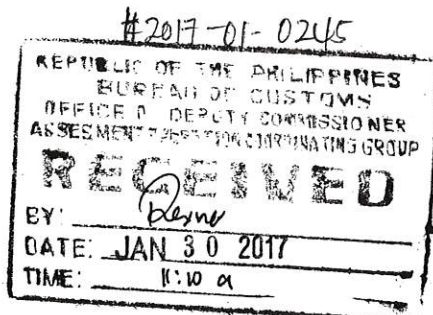 #2017-01-0245
REPUBLIC OF THE PHILIPPINES
BUREAU OF CUSTOMS
OFFICE OF DEPUTY COMMISSIONER
ASSESMENT OPERATION COORDINATING GROUP
RECEIVED
BY:
DATE: JAN 30 2017
TIME: 11:10 a